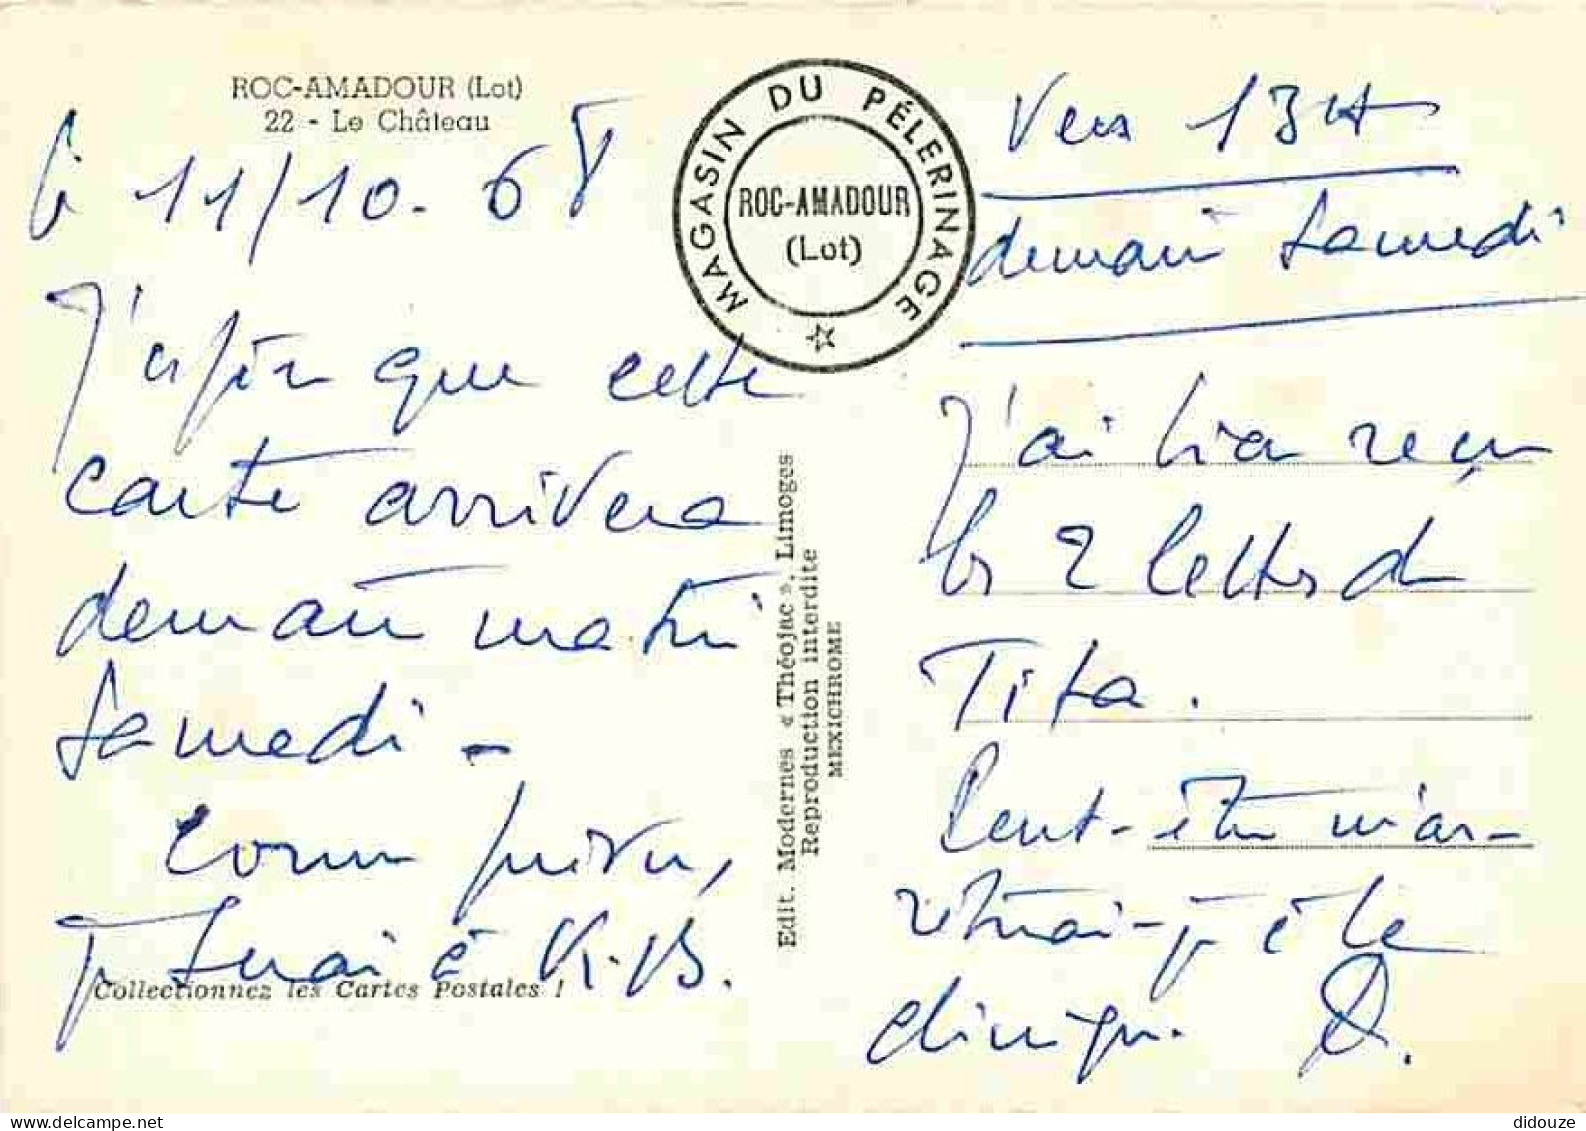 ROC-AMADOUR (Lot)
22 - Le Château
le 11/10. 68
J'espère que cette
carte arrivera
demain matin
Samedi -
Comme prévu,
je serai à K.B.
Collectionnez les Cartes Postales !
MAGASIN DU PÉLERINAGE
ROC-AMADOUR
(Lot)
Edit. Modernes « Théojac », Limoges
Reproduction interdite
MEXICHROME
Vers 13H
demain Samedi
J'ai bien reçu
les 2 lettres de
Tita.
Peut-être m'ar-
rêterai-je à la
clinique.
didouze